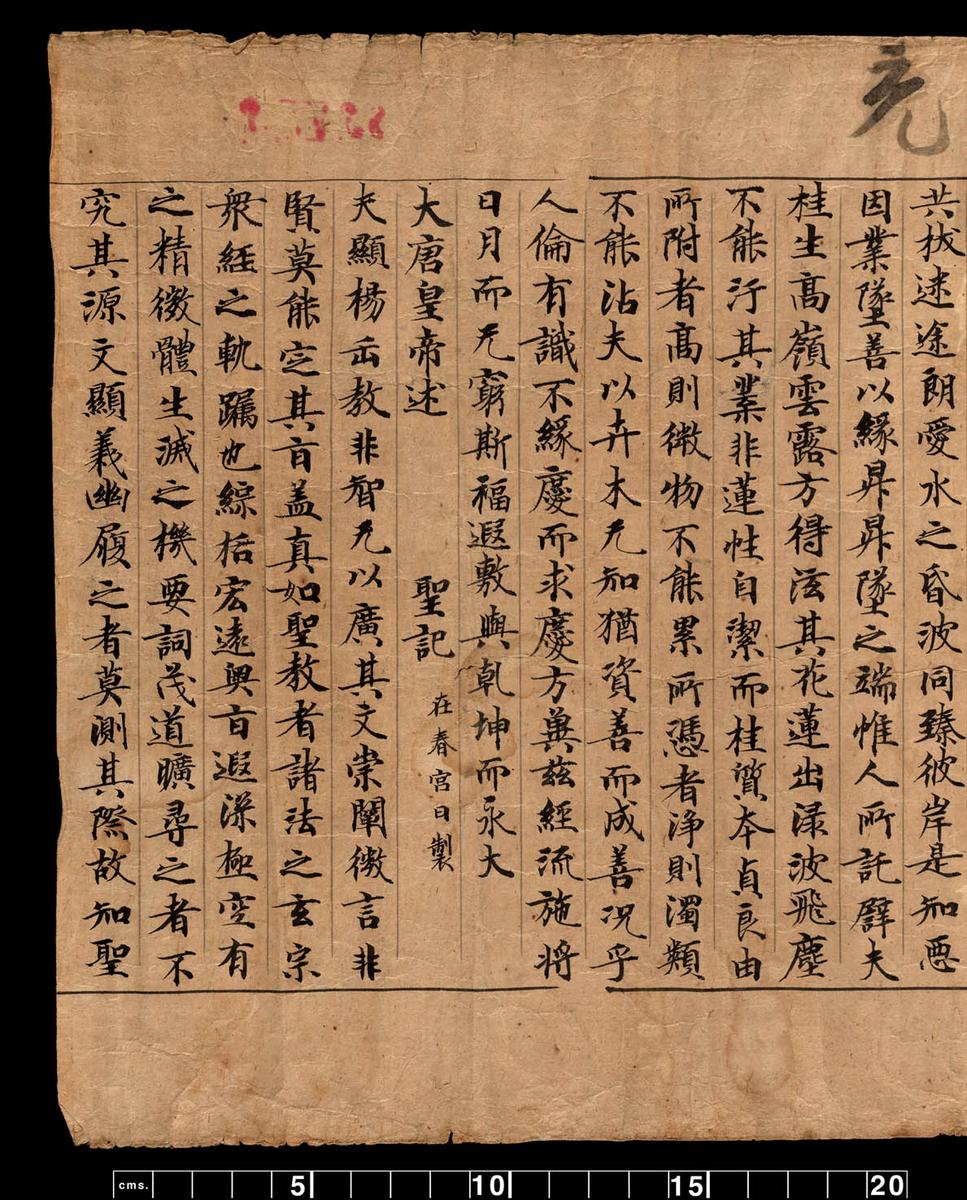 共拔迷途朗愛水之昏波同臻彼岸是知惡
因業墜善以緣昇昇墜之端惟人所託譬夫
桂生高嶺雲露方得泫其花蓮出淥波飛塵
不能汙其葉非蓮性自潔而桂質本貞良由
所附者高則微物不能累所憑者淨則濁類
不能沾夫以卉木无知猶資善而成善況乎
人倫有識不緣慶而求慶方冀茲經流施將
日月而无窮斯福遐敷與乹坤而永大
大唐皇帝述 聖記 在春宮日製
夫顯楊正教非智无以廣其文崇闡微言非
賢莫能定其旨盖真如聖教者諸法之玄宗
衆經之軌躅也綜栝宏遠奧旨遐深極空有
之精微體生滅之機要詞茂道曠尋之者不
究其源文顯義幽履之者莫測其際故知聖